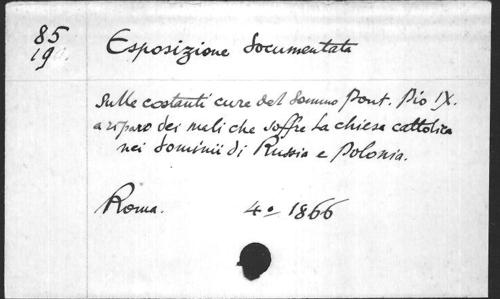 85
19
Esposizione documentata
sulle costanti cure del sommo Pont. Pio IX.
a riparo dei mali che soffre la chiesa cattolica
nei dominii di Russia e Polonia.
Roma. 4º 1866